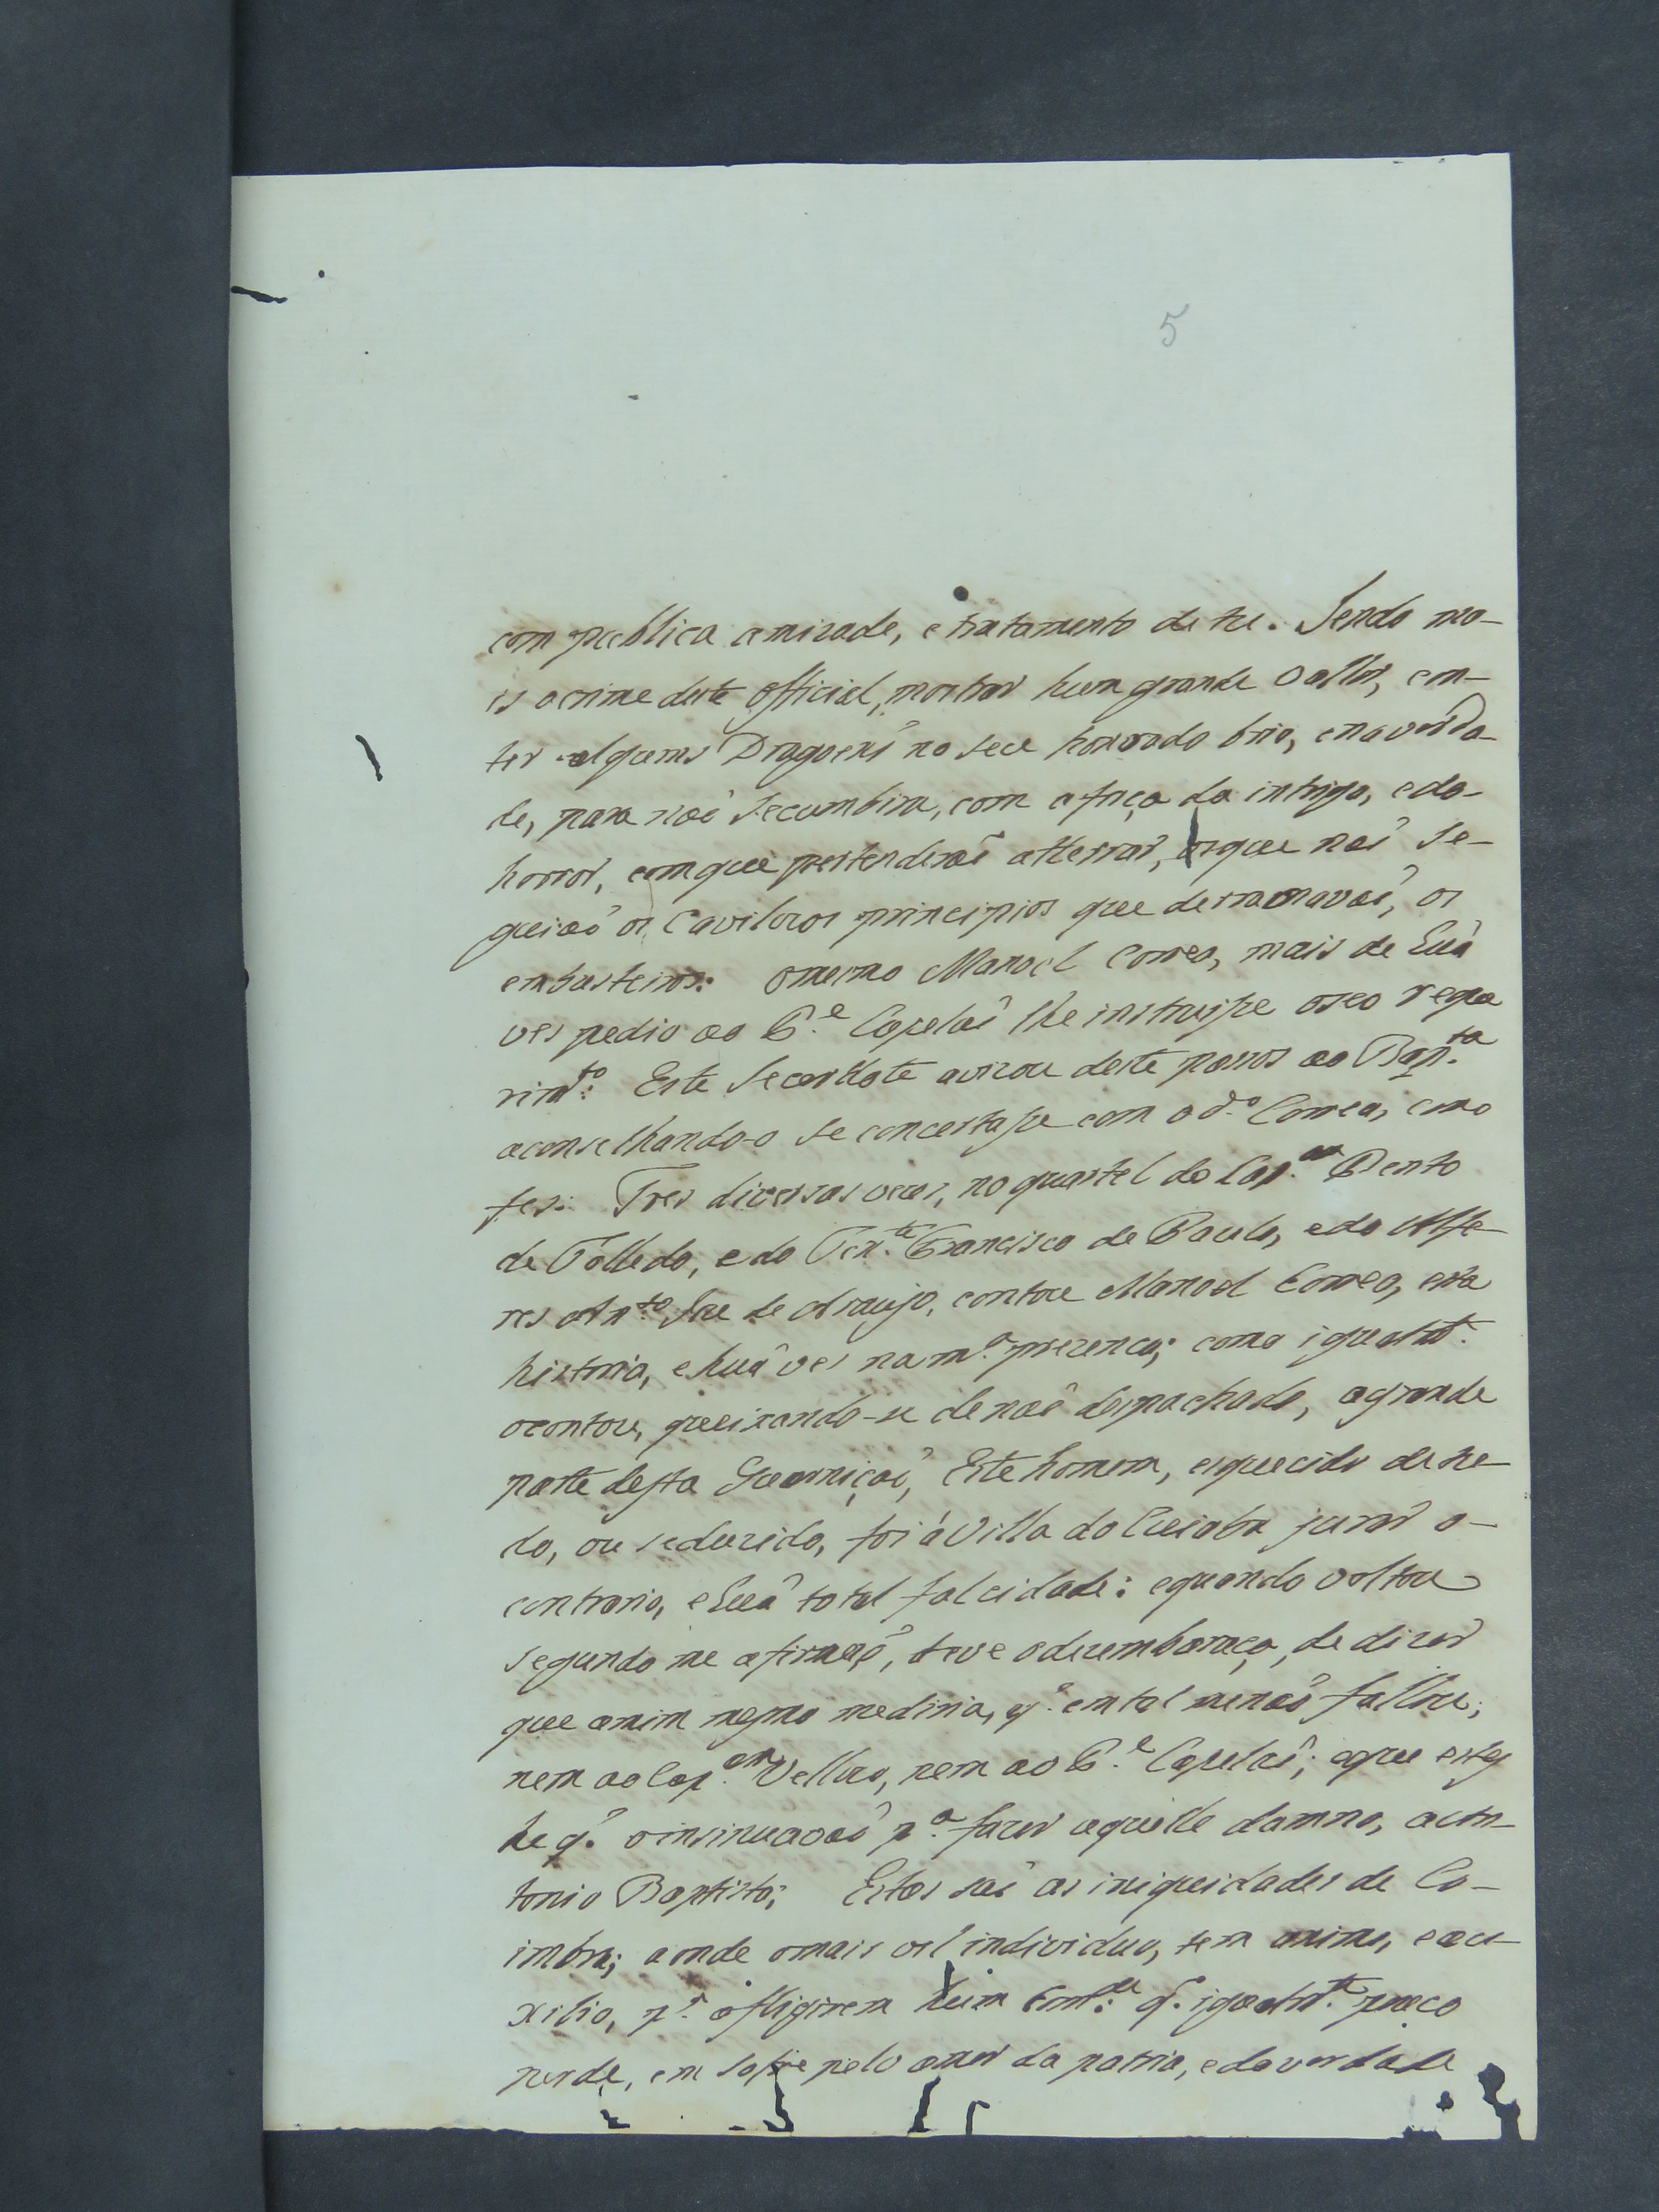 5
com publica amizade, e tratamento de tu. Sendo ma-
is o crime deste official, mostrar hum grande vallor, con-
ter alguns Dragoens no seu honrado brio, e na verda-
de, para naõ Secumbirn, com a força da intriga, e do-
horror, com que pertenderaõ atterrar, os que naõ Se-
guiaõ os Cavilozos principios que derramavaõ, os
embusteiros: O mesmo Manoel Correa, mais de huã
ves pedio ao P.e Capelaõ lhe instruisse o seo reque
rimt.o: Este Secerdote avizou deste passos ao Bap.ta
aconselhando-o se concertasse com o d.o Correa, como
fes: Tres diversas vezes, no quartel do Cap.am Bento
de Tolledo, e do Ten.te Francisco de Paulo, e do Alfe
res Ant.o Joze de Araujo, contou Manoel Correa, esta
historia, e huã ves na m.a prezenca; como igualmt.e
o contou, queixando-se de naõ despachado, a grande
parte desta Guarniçaõ, Este homem, esquecido de tu-
do, ou seduzido, foi á Villa do Cuiaba jurar o-
contrario, e huã total falcidade: e quando voltou
segundo me afirmaõ, teve o dezembaraço, de dizer
que a mim mesmo mediria, q.e em tal me naõ fallou;
nem ao Cap.am Velloso, nem ao P.e Capelaõ; e que estes
he q.e o insinuavaõ p.a fazer aquelle damno, a An-
tonio Baptista; Estas saõ as iniqueidades de Co-
imbra; aonde o mais vil individuo, tem animo, e au-
xilio, p.a afligirem hum Com.de q.e igualmt.e pouco
perde, em sofre pelo amor da patria, e da verdade